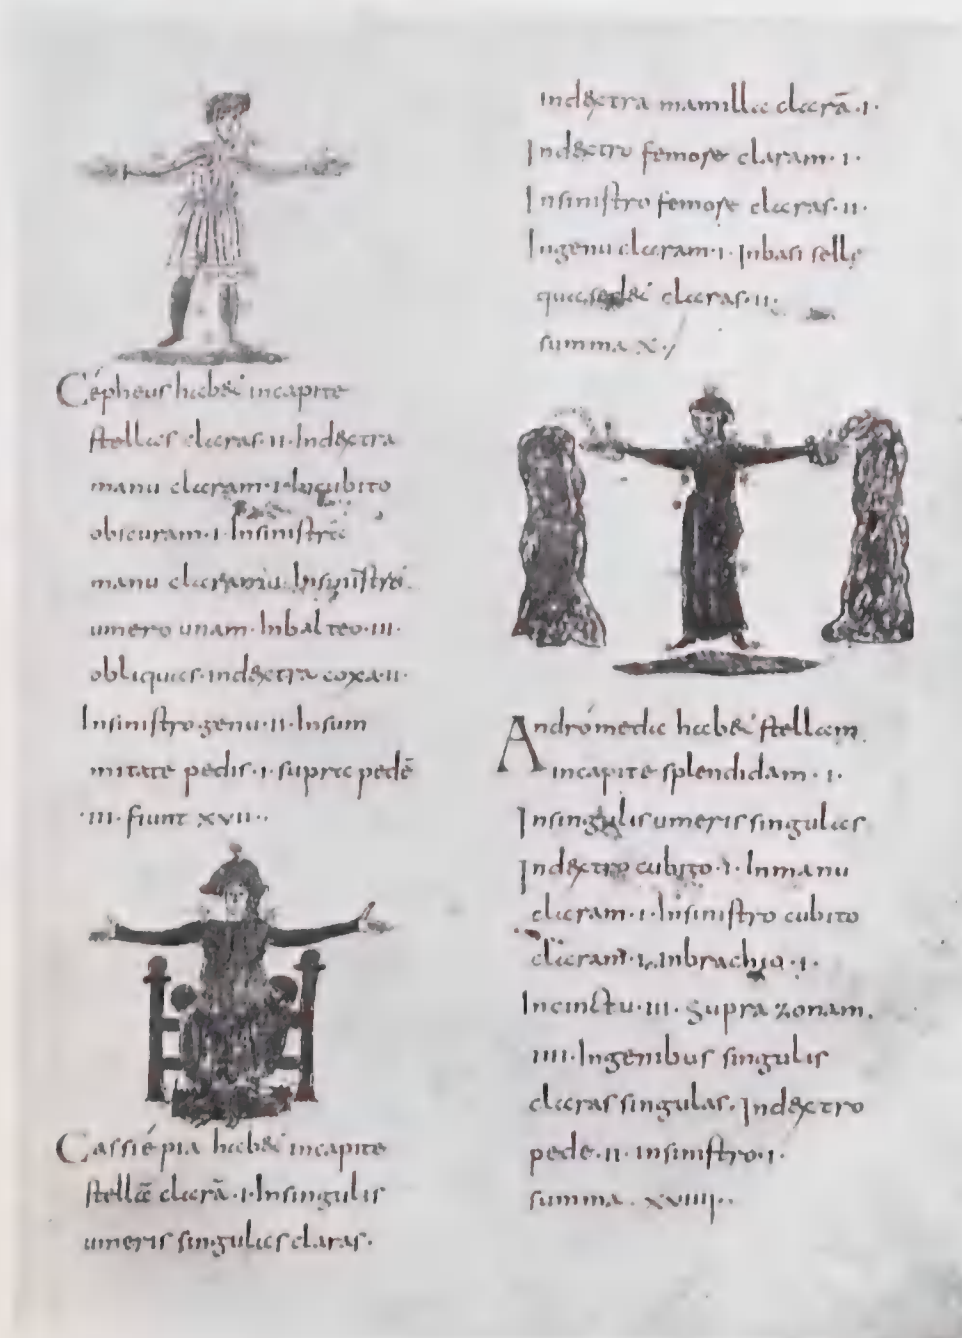 Cépheus habet incapite
stellas claras·II·Indextra
manu claram·I·Incubito
obscuram·I·Insinistra
manu claram·I·Insinistro
umero unam·Inbalteo·III·
obliquas·indextra coxa·II·
Insinistro·genu·II·Insum
mitate pedis·I·supra pedē
·III·fiunt XVII··
Cassiépia habet incapite
stellā clarā·I·Insingulis
umeris singulas claras·
indextra mamilla clarā·I·
Indextro femore claram·I·
Insinistro femore claras·II·
Ingenu claram·I·Inbasi sellę
qua sedet claras·II·
summa X·/
Andrómeda habet stellam
incapite splendidam·I·
Insingulis umeris singulas
Indextro cubito·I·Inmanu
claram·I·Insinistro cubito
claram·I·Inbrachio·I·
Incinctu·III·Supra zonam·
IIII·Ingenibus singulis
claras singulas·Indextro
pede·II·insinistro·I·
summa·XVIIII··